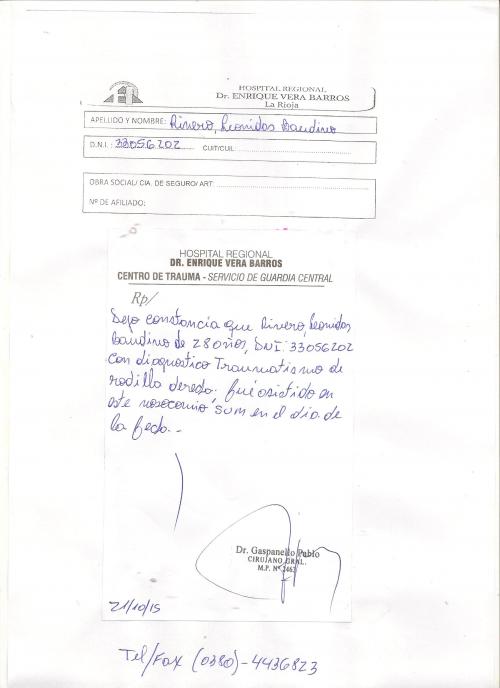 HOSPITAL REGIONAL
Dr. ENRIQUE VERA BARROS
La Rioja
APELLIDO Y NOMBRE: Rivero, Leonidas Baudino
D.N.I.: 33056202 CUIT/CUIL:
OBRA SOCIAL/ CIA. DE SEGURO/ ART:
Nº DE AFILIADO:
HOSPITAL REGIONAL
DR. ENRIQUE VERA BARROS
CENTRO DE TRAUMA - SERVICIO DE GUARDIA CENTRAL
Rp/
Dejo constancia que Rivero, Leonidas
Baudino de 28 años, DNI: 33056202
con diagnostico Traumatismo de
rodilla derecha, fué asistido en
este nosocomio SUM en el dia de
la fecha.-
Dr. Gaspanello Pablo
CIRUJANO GRAL.
M.P. Nº 2463
21/10/15
Tel/Fax (0380)-4436823